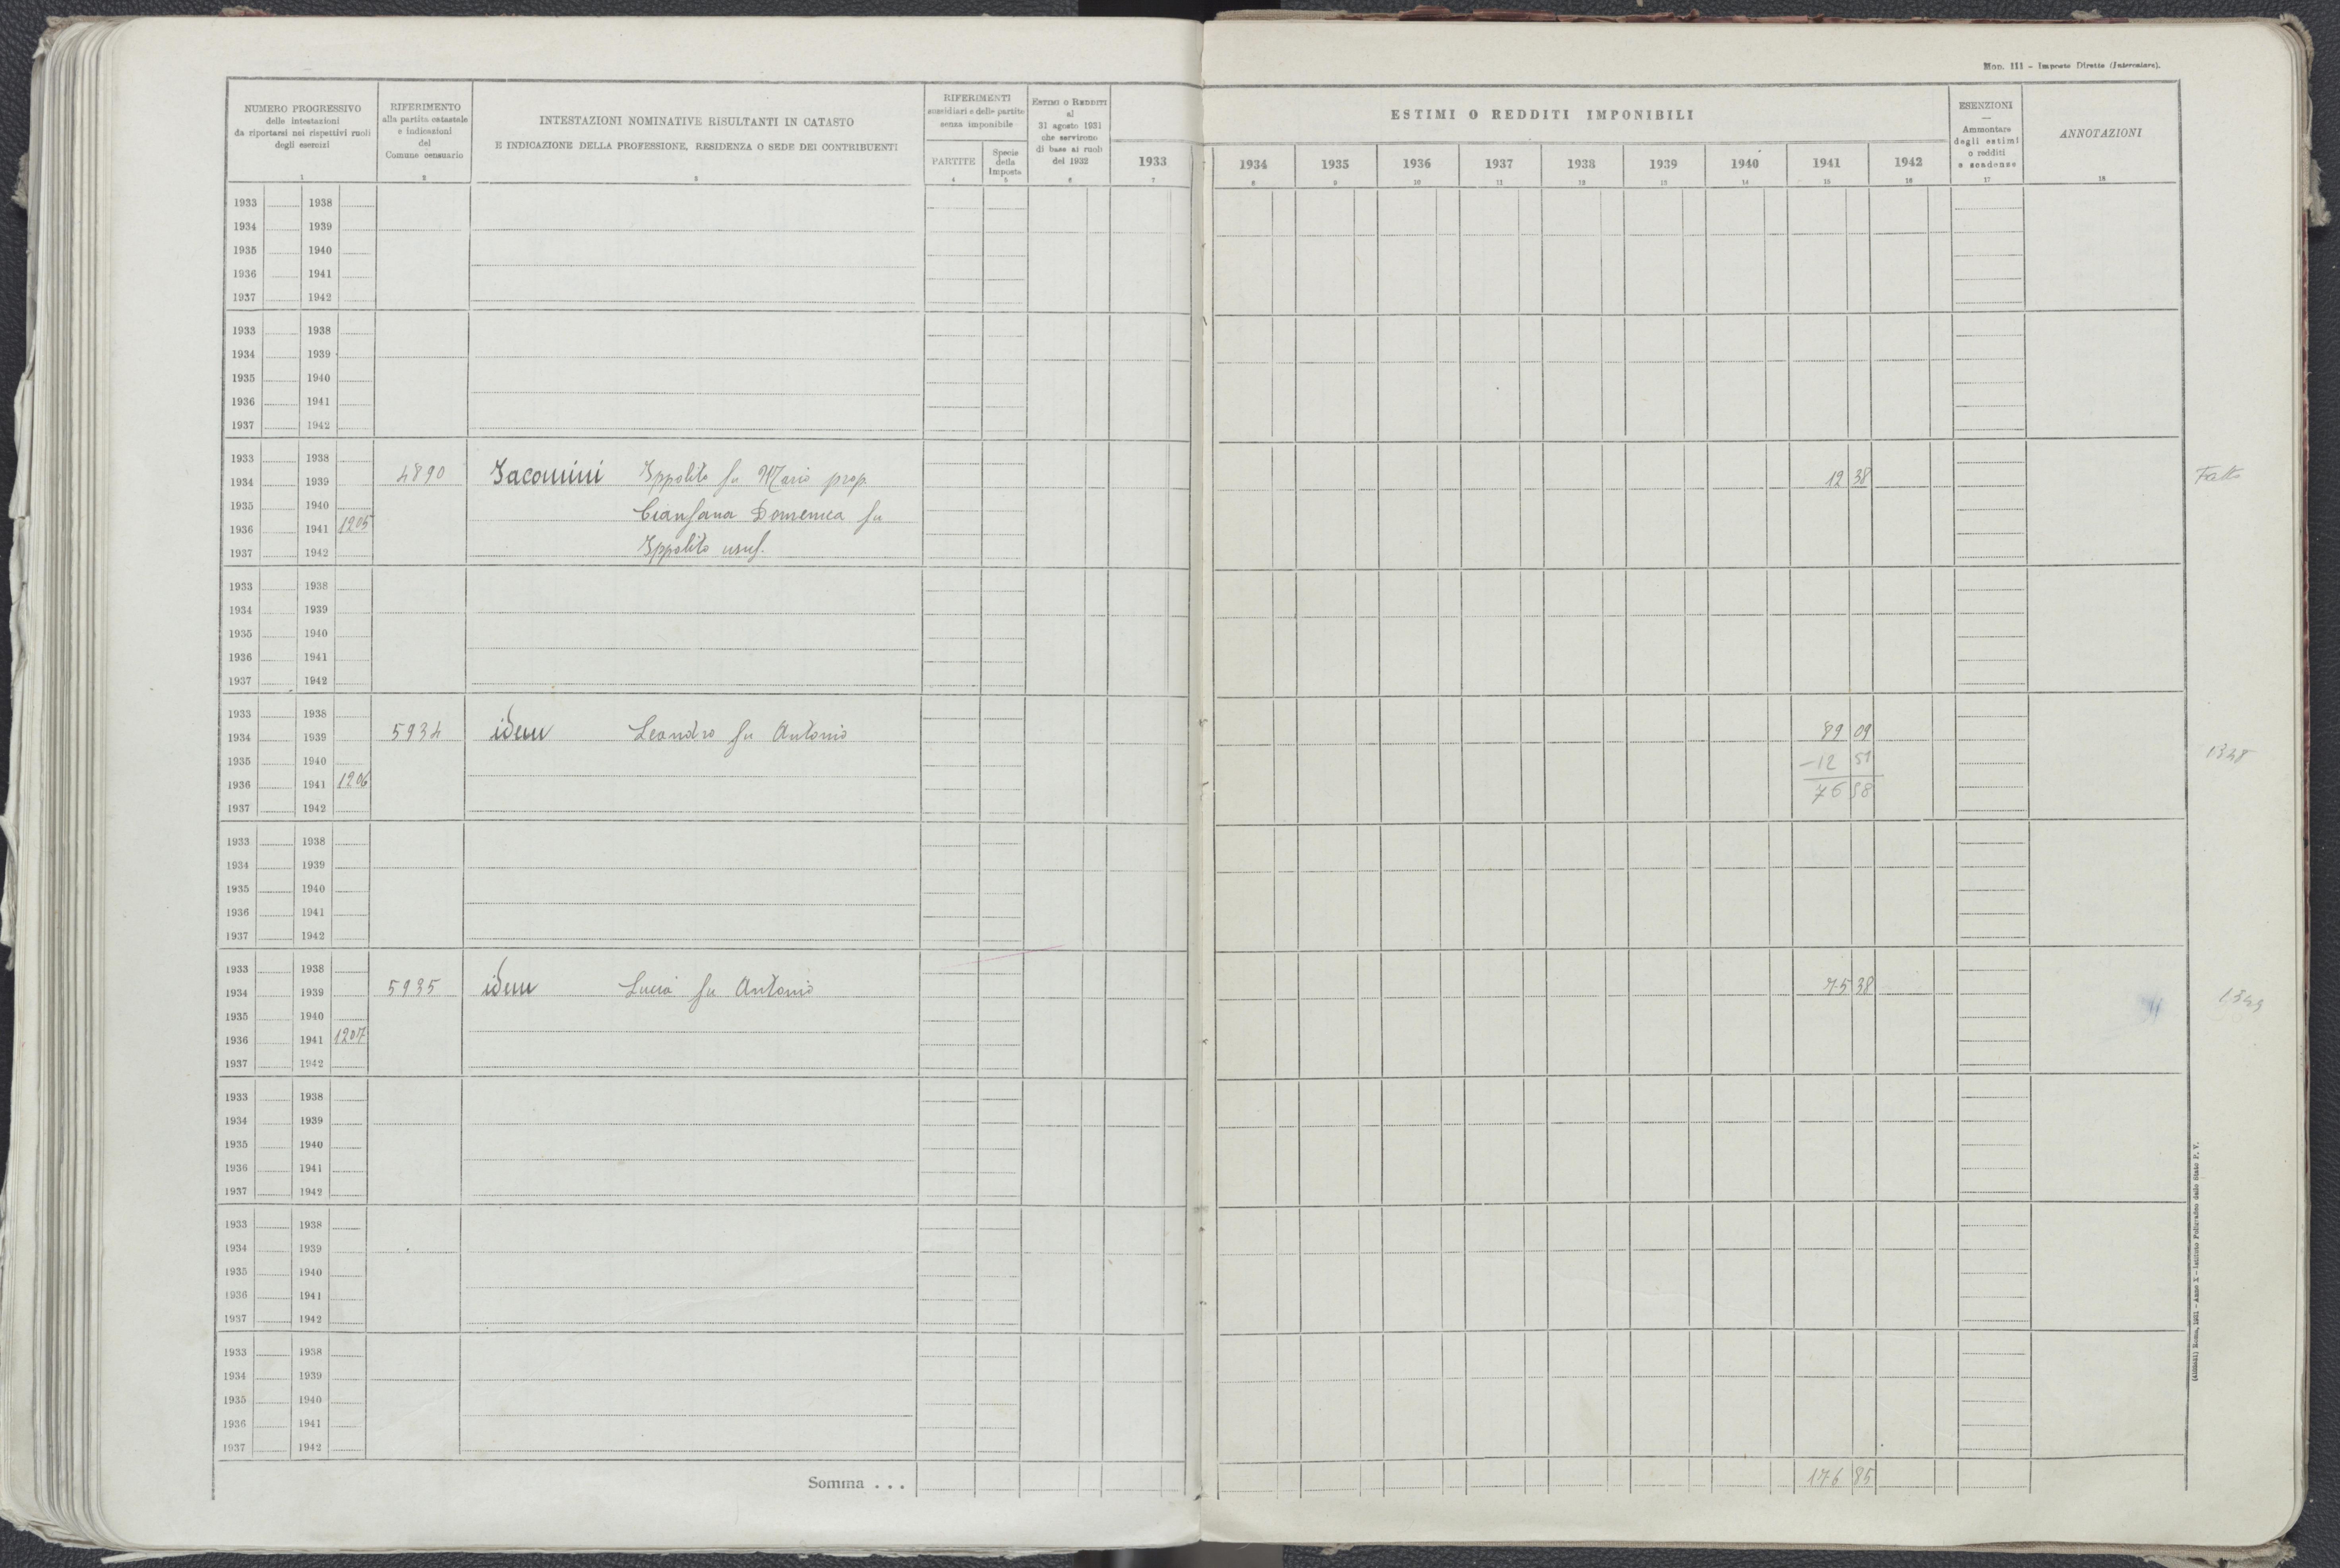 Mon. 111 – Imposte Dirette (Intercalare).
NUMERO PROGRESSIVO
delle intestazioni
da riportarsi nei rispettivi ruoli
degli esercizi
1
RIFERIMENTO
alla partita catastale
e indicazioni
del
Comune censuario
2
INTESTAZIONI NOMINATIVE RISULTANTI IN CATASTO
E INDICAZIONE DELLA PROFESSIONE, RESIDENZA O SEDE DEI CONTRIBUENTI
3
RIFERIMENTI
sussidiari e delle partite
senza imponibile
PARTITE
4
Specie
della
Imposta
5
ESTIMI O REDDITI
al
31 agosto 1931
che servirono
di base ai ruoli
del 1932
6
ESTIMI O REDDITI IMPONIBILI
1933 1934 1935 1936 1937 1938 1939 1940 1941 1942
7 8 9 10 11 12 13 14 15 16
ESENZIONI
—
Ammontare
degli estimi
o redditi
e scadenze
17
ANNOTAZIONI
18
1933 1938
1934 1939
1935 1940
1936 1941
1937 1942
1933 1938
1934 1939
1935 1940
1936 1941
1937 1942
1933 1938
1934 1939 4890 Iacomini Ippolito fu Mario prop. 12 38 Fatto
1935 1940 Cianfana Domenica fu
1936 1941 1205
1937 1942 Ippolito usuf.
1933 1938
1934 1939
1935 1940
1936 1941
1937 1942
1933 1938
1934 1939 5934 idem Leandro fu Antonio 89 09
1935 1940 –12 51 1348
1936 1941 1206 76 58
1937 1942
1933 1938
1934 1939
1935 1940
1936 1941
1937 1942
1933 1938
1934 1939 5935 idem Lucia fu Antonio 75 38
1935 1940
1936 1941 1207
1937 1942
1933 1938
1934 1939
1935 1940
1936 1941
1937 1942
1933 1938
1934 1939
1935 1940
1936 1941
1937 1942
1933 1938
1934 1939
1935 1940
1936 1941
1937 1942
Somma . . . 176 85
Roma, 1931 – Anno X – Istituto Poligrafico dello Stato P. V.